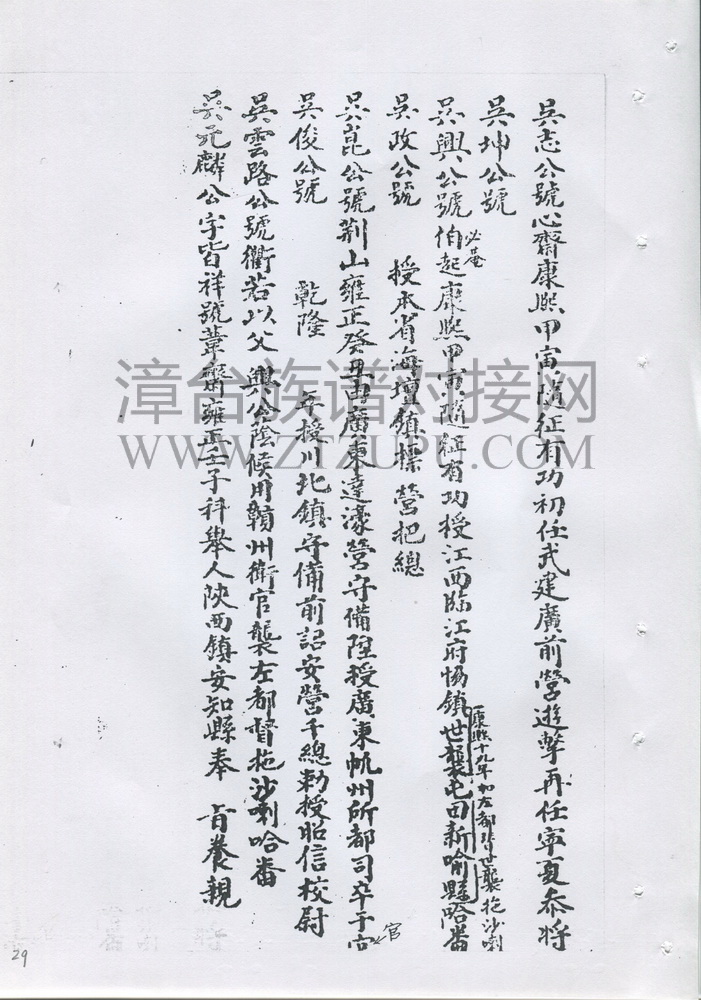 吳志公號心齋康熙甲寅隨征有功初任武建廣前營遊擊再任寧夏參將
吳坤公號
吳興公號伯起康熙甲寅隨征有功授江西臨江府協鎮世襲屯田新喻縣哈番
必菴
康熙十九年加左都督世襲拖沙喇
吳政公號 授本省海壇鎮標營把總
吳崑公號荊山雍正癸丑由廣東達濠營守備陞授廣東帆州所都司卒于官
官
吳俊公號 乾隆 年授川北鎮守備前詔安營千總勅授昭信校尉
吳雲路公號衢若以父興公蔭候用贛州衛官襲左都督拖沙喇哈番
吳元麟公字皆祥號葦齋雍正壬子科舉人陝西鎮安知縣奉 旨養親
漳台族谱对接网
WWW.ZTZUPU.COM
29